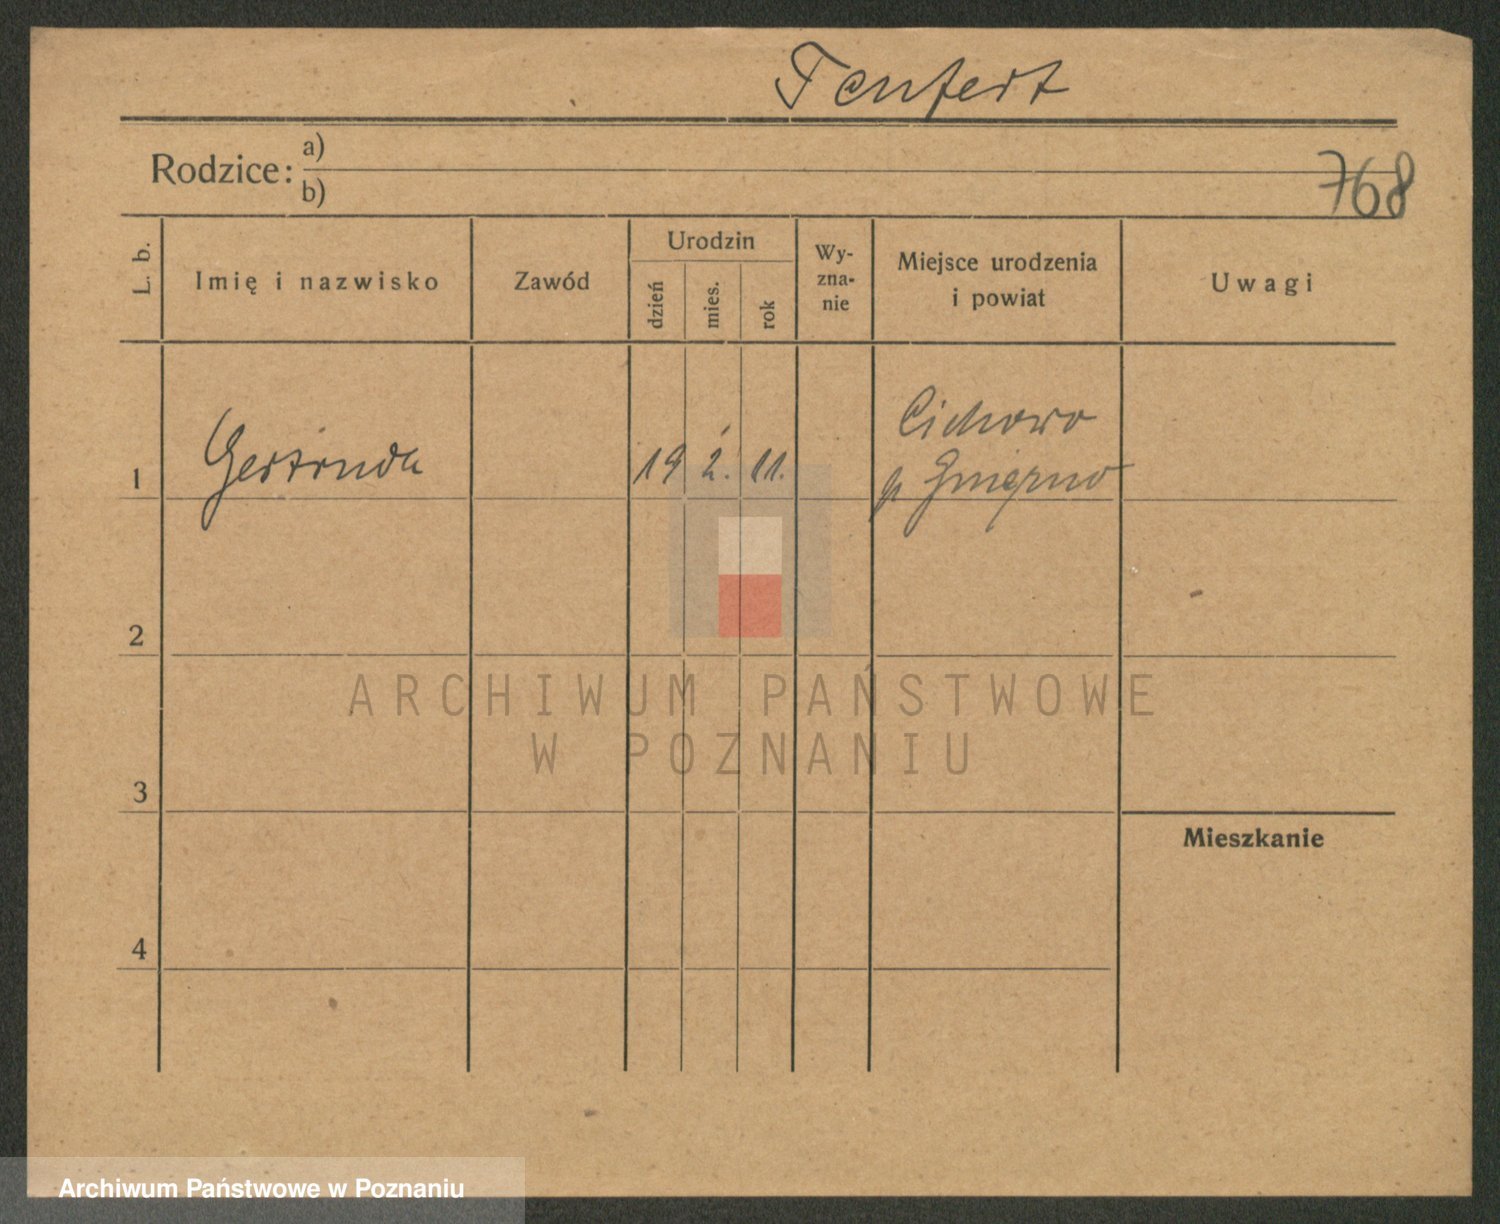 Tenfert
Rodzice: a)
b)
768
L. b.
Imię i nazwisko
Zawód
Urodzin
dzień
mies.
rok
Wy-
zna-
nie
Miejsce urodzenia
i powiat
Uwagi
1
Gertruda
19 2. 11.
Cichowo
p
2
3
4
Mieszkanie
ARCHIWUM PAŃSTWOWE
W POZNANIU
Archiwum Państwowe w Poznaniu